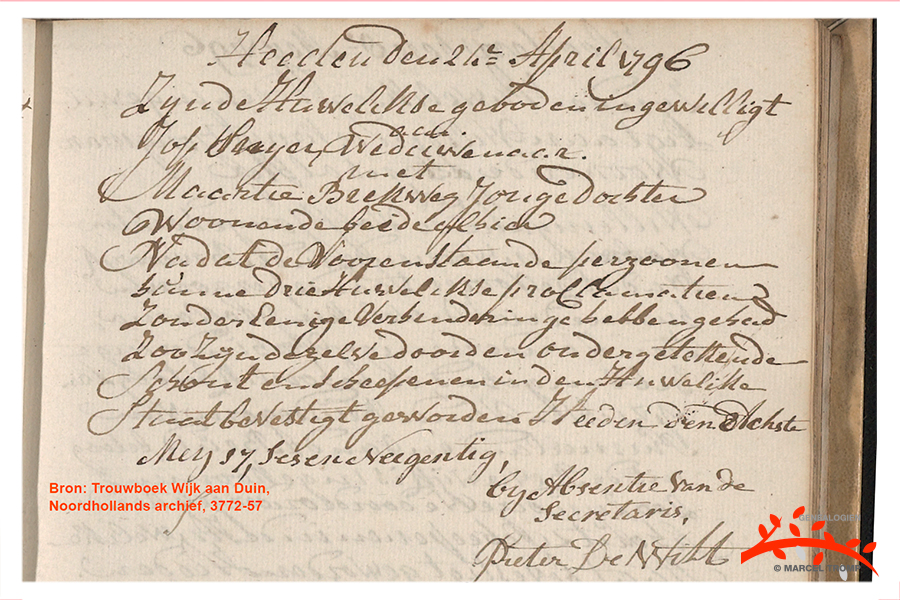 Heeden den 21:e April 1796
Zyn de Huwelikse geboden ingewilligt
aan.
Jof Weduwenaar.
met
Maartie Brekweg Jonge dochter
Woonende beide alhier
Na dat de Voorenstaande perzoonen
hunne drie Huwelikse proclamatien
Zonder Eenige Verhindering hebben gehad
Zoo Zyn de zelve door den ondergetekende
Schout en Scheepenen in den Huwelikse
Staat bevestigt geworden Heeden den Achste
Mey 17, Sesen Neegentig,
by Absentie van de
Secretaris,
Pieter De Wildt
Bron: Trouwboek Wijk aan Duin,
Noordhollands archief, 3772-57
GENEALOGIE
© MARCEL TROMP